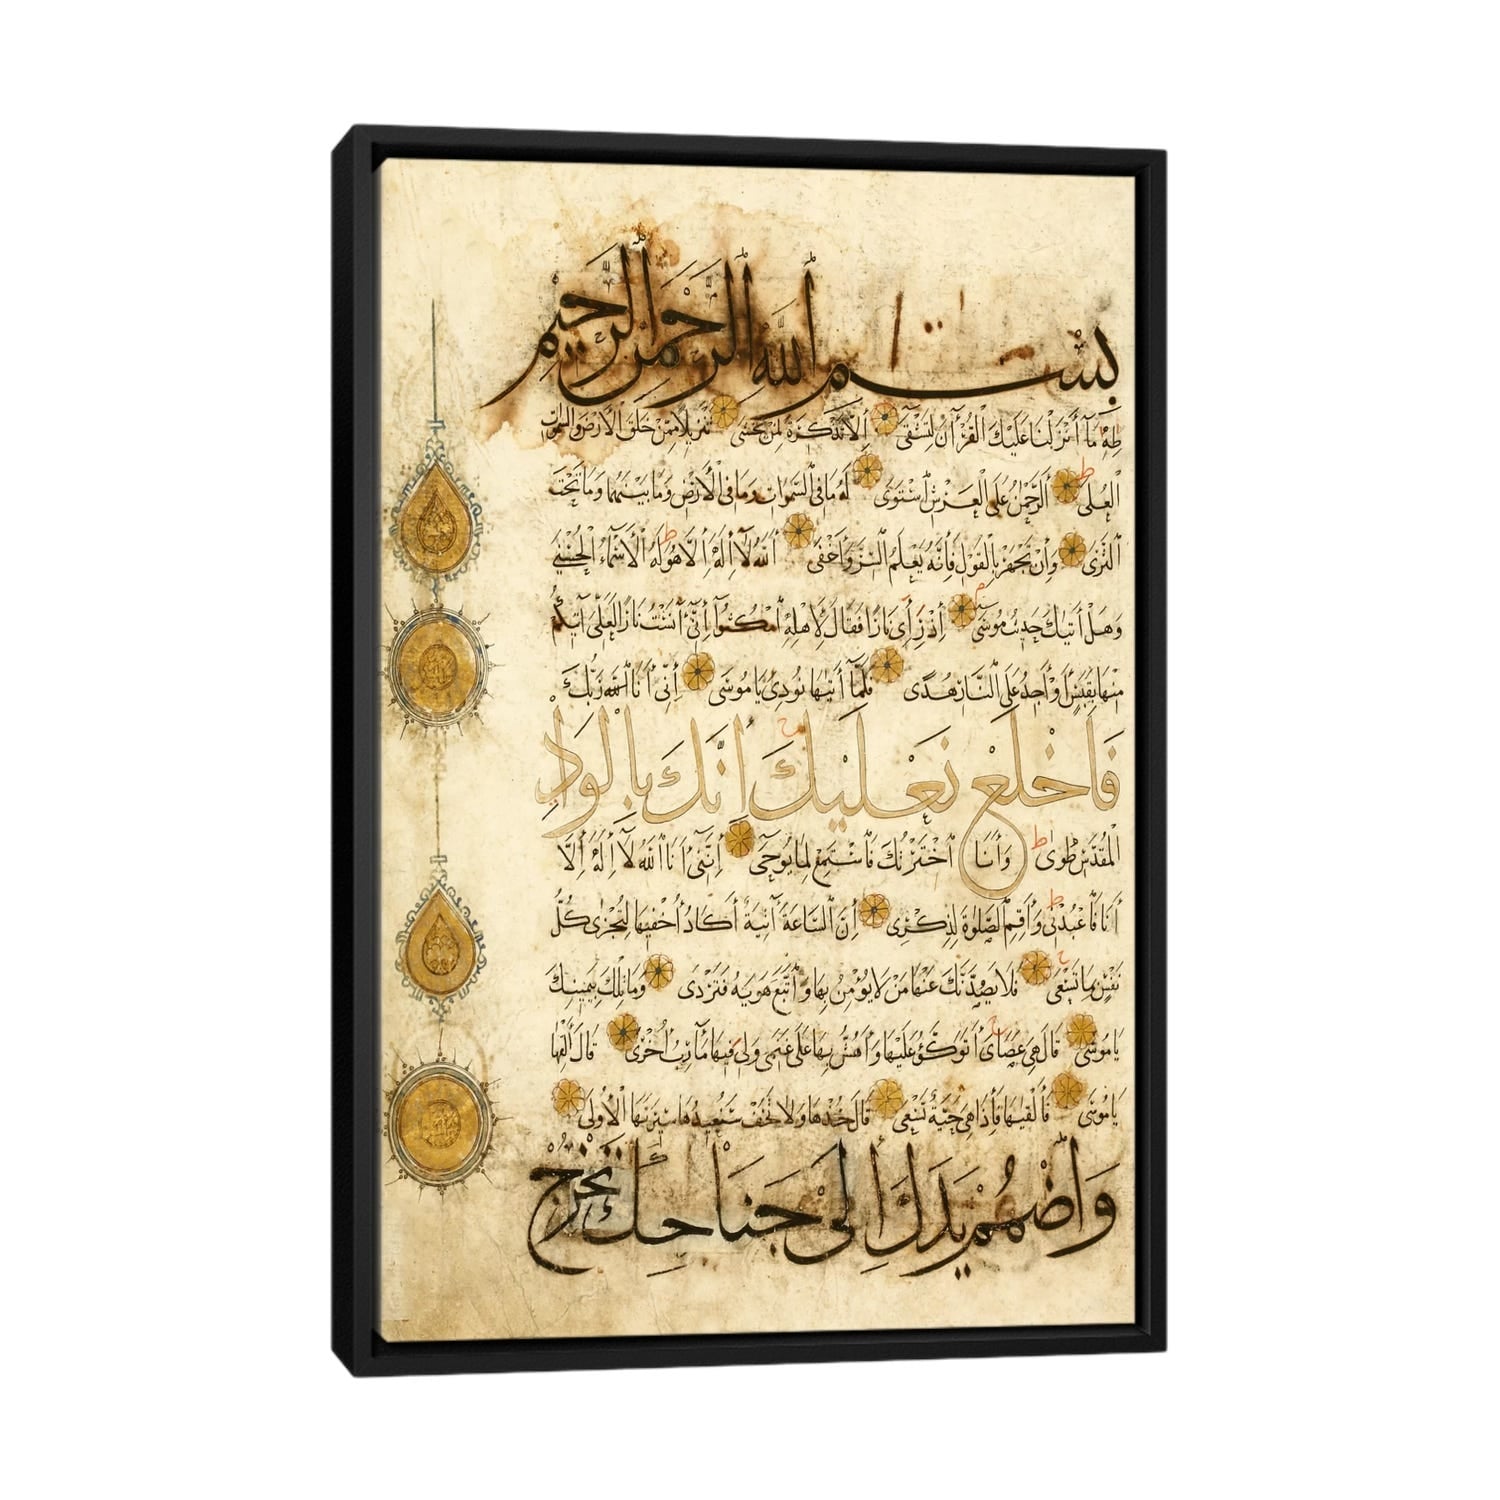 بِسْمِ اللهِ الرَّحْمٰنِ الرَّحِيمِ
طه مَا أَنْزَلْنَا عَلَيْكَ الْقُرْآنَ لِتَشْقَى إِلَّا تَذْكِرَةً لِمَنْ يَخْشَى تَنْزِيلًا مِمَّنْ خَلَقَ الْأَرْضَ وَالسَّمٰوَاتِ
الْعُلَى الرَّحْمٰنُ عَلَى الْعَرْشِ اسْتَوَى لَهُ مَا فِي السَّمٰوَاتِ وَمَا فِي الْأَرْضِ وَمَا بَيْنَهُمَا وَمَا تَحْتَ
الثَّرَى وَإِنْ تَجْهَرْ بِالْقَوْلِ فَإِنَّهُ يَعْلَمُ السِّرَّ وَأَخْفَى اللهُ لَا إِلٰهَ إِلَّا هُوَ لَهُ الْأَسْمَاءُ الْحُسْنَى
وَهَلْ أَتٰيكَ حَدِيثُ مُوسَى إِذْ رَأَى نَارًا فَقَالَ لِأَهْلِهِ امْكُثُوا إِنِّي آنَسْتُ نَارًا لَعَلِّي آتِيكُمْ
مِنْهَا بِقَبَسٍ أَوْ أَجِدُ عَلَى النَّارِ هُدًى فَلَمَّا أَتٰيهَا نُودِيَ يَا مُوسَى إِنِّي أَنَا رَبُّكَ
فَاخْلَعْ نَعْلَيْكَ إِنَّكَ بِالْوَادِ
الْمُقَدَّسِ طُوًى وَأَنَا اخْتَرْتُكَ فَاسْتَمِعْ لِمَا يُوحَى إِنَّنِي أَنَا اللهُ لَا إِلٰهَ إِلَّا
أَنَا فَاعْبُدْنِي وَأَقِمِ الصَّلٰوةَ لِذِكْرِي إِنَّ السَّاعَةَ آتِيَةٌ أَكَادُ أُخْفِيهَا لِتُجْزَى كُلُّ
نَفْسٍ بِمَا تَسْعَى فَلَا يَصُدَّنَّكَ عَنْهَا مَنْ لَا يُؤْمِنُ بِهَا وَاتَّبَعَ هَوٰيهُ فَتَرْدَى وَمَا تِلْكَ بِيَمِينِكَ
يَا مُوسَى قَالَ هِيَ عَصَايَ أَتَوَكَّؤُ عَلَيْهَا وَأَهُشُّ بِهَا عَلَى غَنَمِي وَلِيَ فِيهَا مَآرِبُ أُخْرَى قَالَ أَلْقِهَا
يَا مُوسَى فَأَلْقٰيهَا فَإِذَا هِيَ حَيَّةٌ تَسْعَى قَالَ خُذْهَا وَلَا تَخَفْ سَنُعِيدُهَا سِيرَتَهَا الْأُولَى
وَاضْمُمْ يَدَكَ إِلَى جَنَاحِكَ تَخْرُجْ